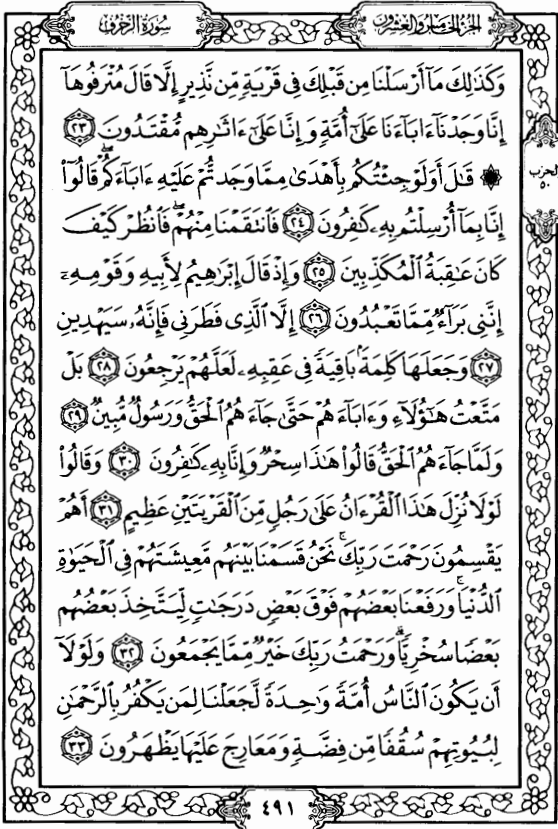 سورة الزخرف
الجزء الخامس والعشرون
وَكَذَٰلِكَ مَآ أَرْسَلْنَا مِن قَبْلِكَ فِى قَرْيَةٍ مِّن نَّذِيرٍ إِلَّا قَالَ مُتْرَفُوهَآ
إِنَّا وَجَدْنَآ ءَابَآءَنَا عَلَىٰٓ أُمَّةٍ وَإِنَّا عَلَىٰٓ ءَاثَٰرِهِم مُّقْتَدُونَ ٢٣
۞ قَٰلَ أَوَلَوْ جِئْتُكُم بِأَهْدَىٰ مِمَّا وَجَدتُّمْ عَلَيْهِ ءَابَآءَكُمْ ۖ قَالُوٓا۟
إِنَّا بِمَآ أُرْسِلْتُم بِهِۦ كَٰفِرُونَ ٢٤ فَٱنتَقَمْنَا مِنْهُمْ ۖ فَٱنظُرْ كَيْفَ
كَانَ عَٰقِبَةُ ٱلْمُكَذِّبِينَ ٢٥ وَإِذْ قَالَ إِبْرَٰهِيمُ لِأَبِيهِ وَقَوْمِهِۦٓ
إِنَّنِى بَرَآءٌ مِّمَّا تَعْبُدُونَ ٢٦ إِلَّا ٱلَّذِى فَطَرَنِى فَإِنَّهُۥ سَيَهْدِينِ
٢٧ وَجَعَلَهَا كَلِمَةًۢ بَاقِيَةً فِى عَقِبِهِۦ لَعَلَّهُمْ يَرْجِعُونَ ٢٨ بَلْ
مَتَّعْتُ هَٰٓؤُلَآءِ وَءَابَآءَهُمْ حَتَّىٰ جَآءَهُمُ ٱلْحَقُّ وَرَسُولٌ مُّبِينٌ ٢٩
وَلَمَّا جَآءَهُمُ ٱلْحَقُّ قَالُوا۟ هَٰذَا سِحْرٌ وَإِنَّا بِهِۦ كَٰفِرُونَ ٣٠ وَقَالُوا۟
لَوْلَا نُزِّلَ هَٰذَا ٱلْقُرْءَانُ عَلَىٰ رَجُلٍ مِّنَ ٱلْقَرْيَتَيْنِ عَظِيمٍ ٣١ أَهُمْ
يَقْسِمُونَ رَحْمَتَ رَبِّكَ ۚ نَحْنُ قَسَمْنَا بَيْنَهُم مَّعِيشَتَهُمْ فِى ٱلْحَيَوٰةِ
ٱلدُّنْيَا ۚ وَرَفَعْنَا بَعْضَهُمْ فَوْقَ بَعْضٍ دَرَجَٰتٍ لِّيَتَّخِذَ بَعْضُهُم
بَعْضًا سُخْرِيًّا ۗ وَرَحْمَتُ رَبِّكَ خَيْرٌ مِّمَّا يَجْمَعُونَ ٣٢ وَلَوْلَآ
أَن يَكُونَ ٱلنَّاسُ أُمَّةً وَٰحِدَةً لَّجَعَلْنَا لِمَن يَكْفُرُ بِٱلرَّحْمَٰنِ
لِبُيُوتِهِمْ سُقُفًا مِّن فِضَّةٍ وَمَعَارِجَ عَلَيْهَا يَظْهَرُونَ ٣٣
الحزب
٥٠
٤٩١